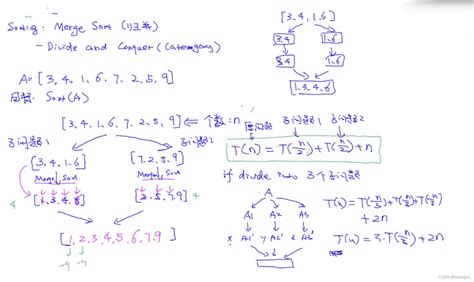 Sorting: Merge Sort (归并)
- Divide and Conquer (Category)
A=[3,4,1,6,7,2,5,9]
问题: Sort(A)
[3,4,1,6,7,2,5,9] ⇐ 个数:n
子问题1
子问题2
[3,4,1,6]
[7,2,5,9]
Merge Sort
Merge Sort
4
[2,5,7,9] 4
[1,2,3,4,5,6,7,9]
[3,4,1,6]
3,4
1,6
3,4
1,6
1,3,4,6
子问题1
子问题2
T(n) = T(n/2) + T(n/2) + n
if divide into 3个子问题
A
A1 A2 A3
x A1' y A2' z A3'
T(n) = T(n/3)+T(n/3)+T(n/3)
+ 2n
T(n) = 3·T(n/3) + 2n